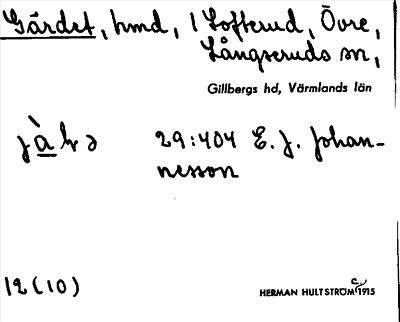 Gärdet, hmd, 1 Lofterud, Övre,
Långseruds sn,
Gillbergs hd, Värmlands län
jàbə 29:404 E. J. Johan-
nesson
12(10) HERMAN HULTSTRÖM 1915